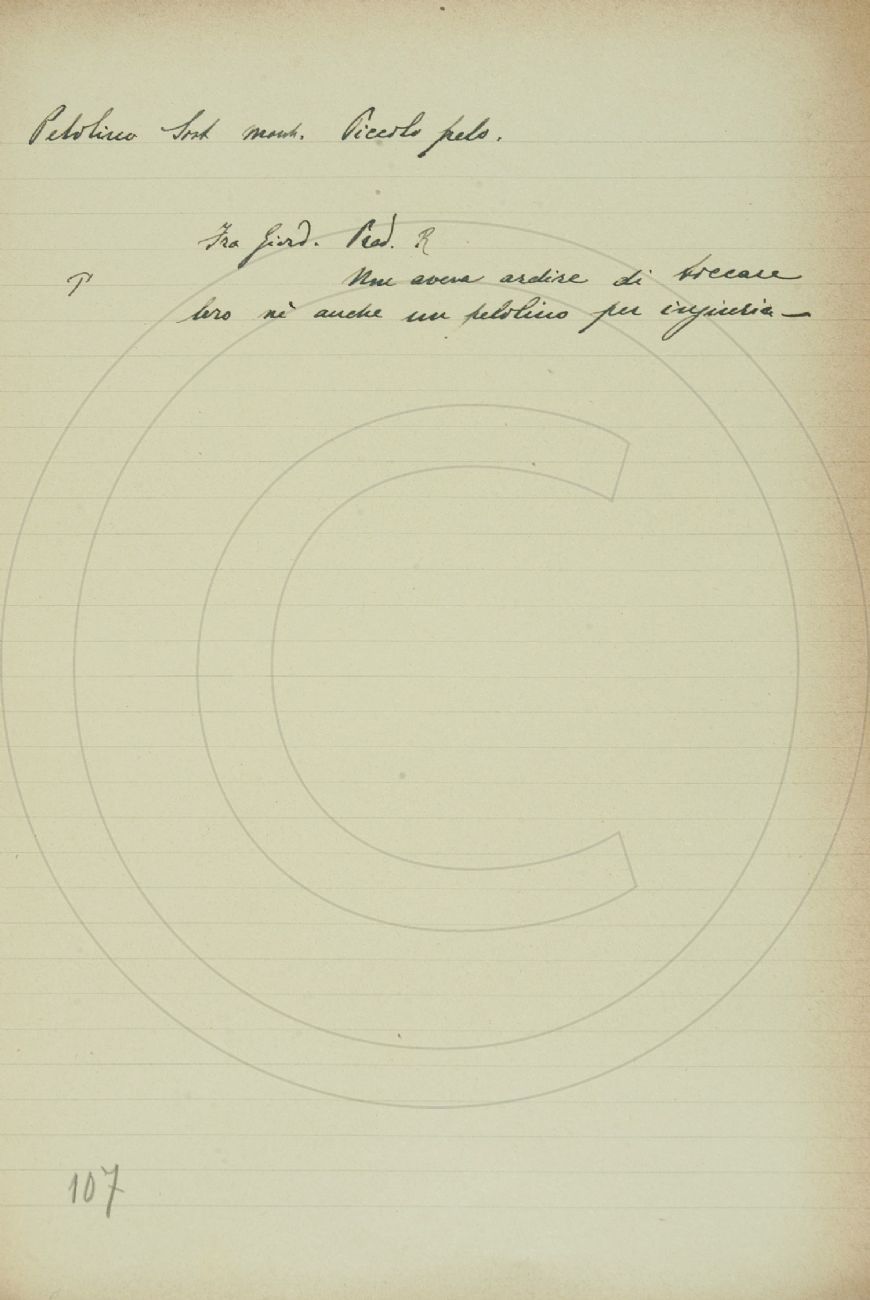 Pelolino Sost. masch. Piccolo pelo.
Fra Giord. Pred. R
T Non aveva ardire di toccare
loro nè anche un pelolino per ingiuria —
107